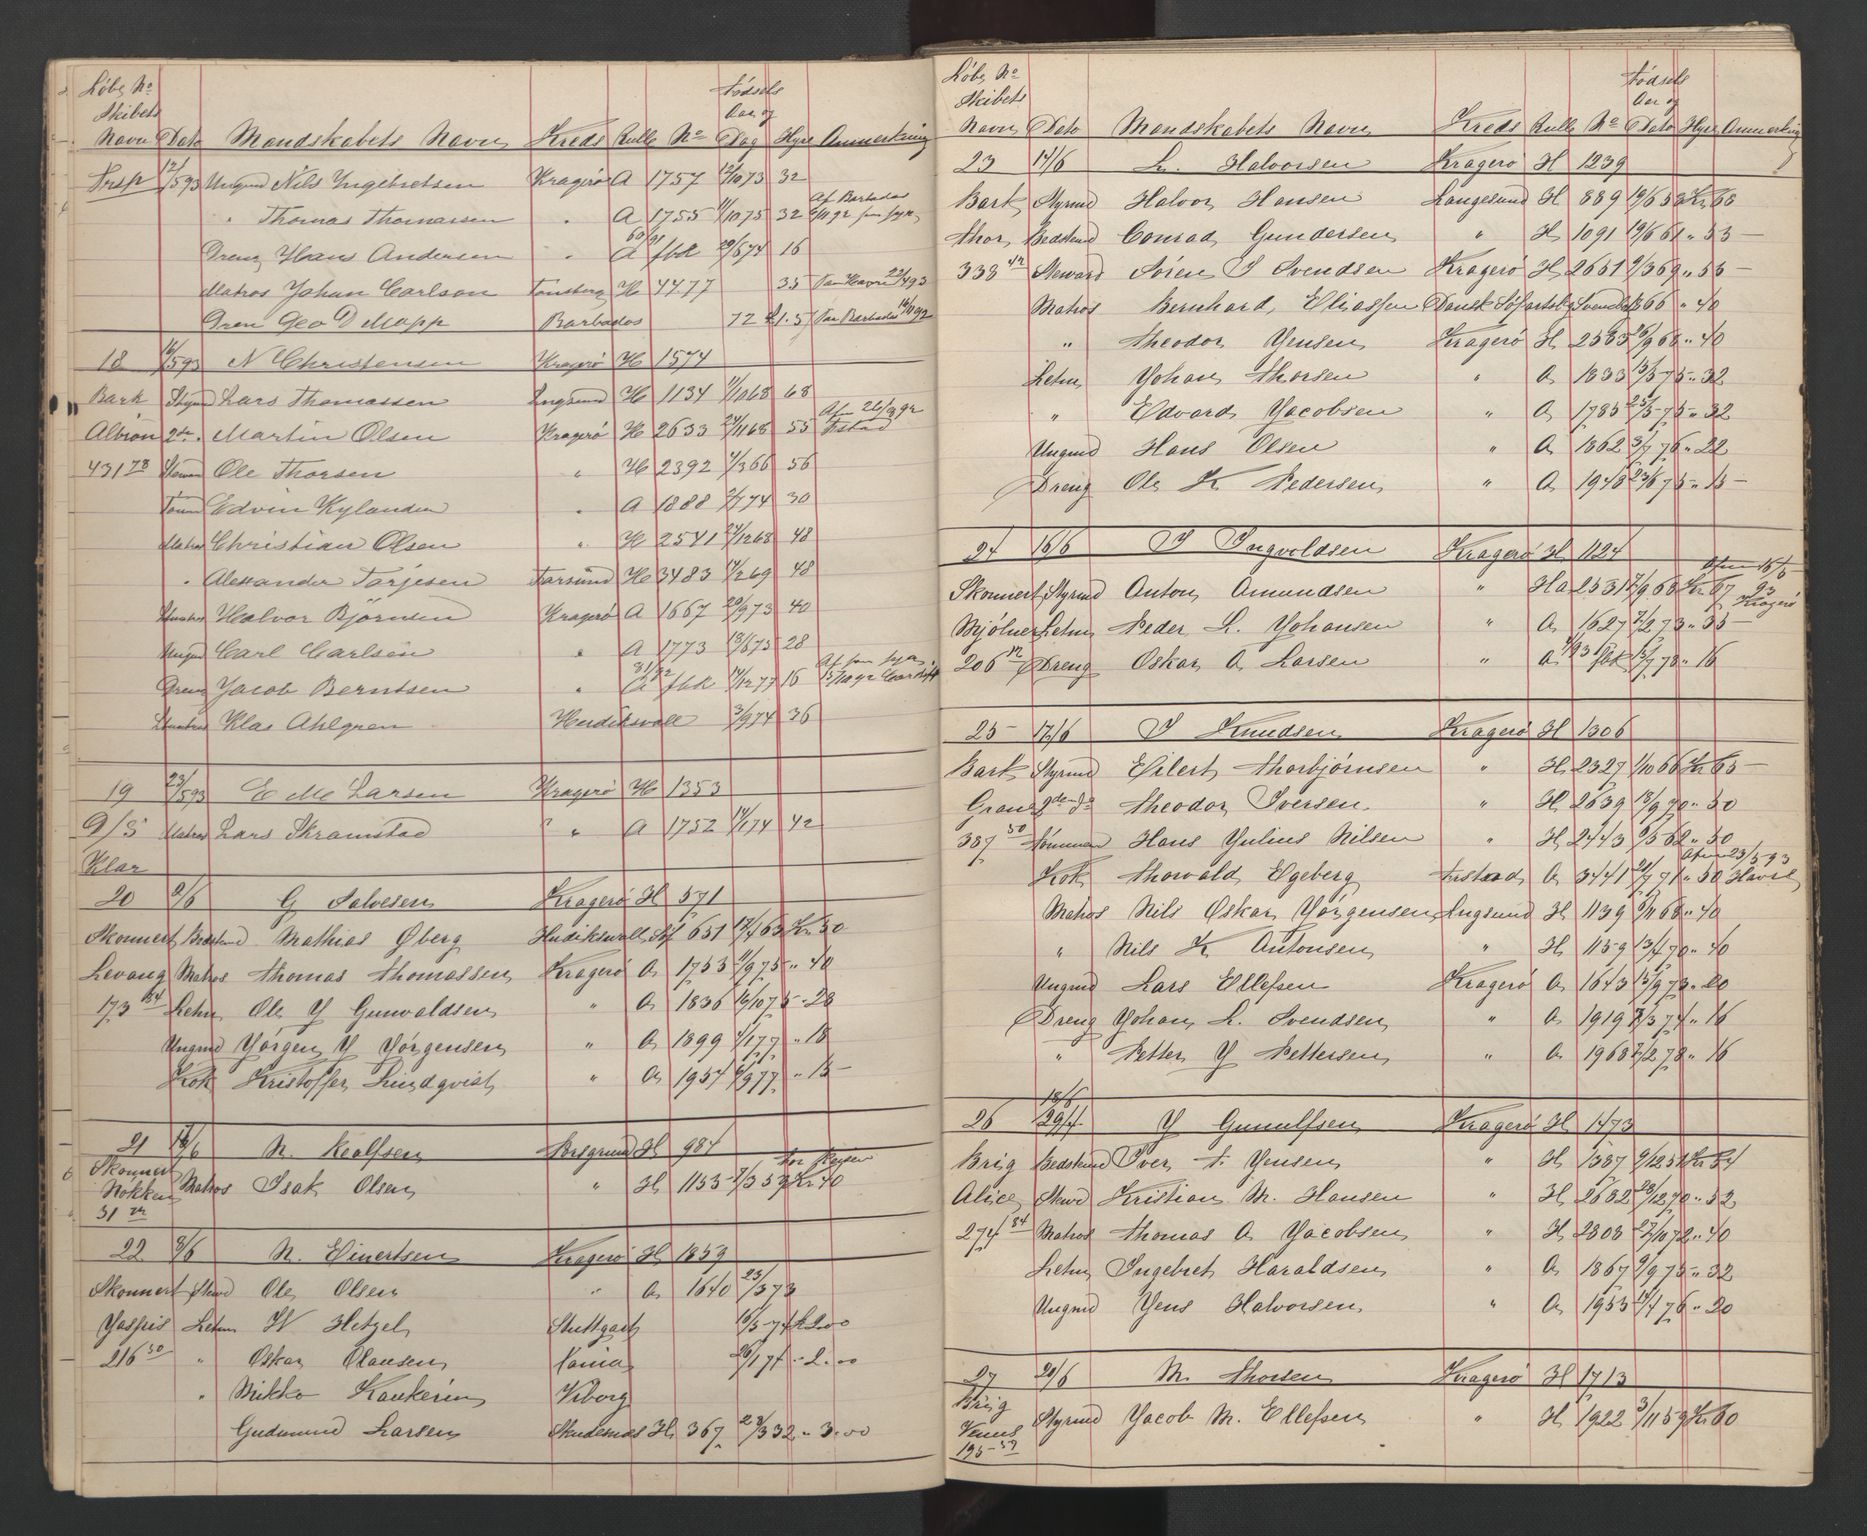 Löbe No
Skibets
Navn Dato Mandskabets Navn Kreds Rulle No Fødsels Aar og Dag Hyre Anmerkning
Trsp 12/5 93 Ungmd Nils Ingebretsen Kragerø A 1757 12/10 73 32
" Thomas Thomassen " A 1755 11/10 75 32 Af Barbados
Dreng Hans Andersen " A fbk 29/6 74 16
Matros Johan Carlson Tønsberg H 4477 35 Paa Havre 22/4 93
Dren Geo D Mapp Barbados 72 £1.5 Paa Barbados 16/11 92
18 16/5 93 N Christensen Kragerø H 1574
Bark Stymd Lars Thomassen Lngsund H 1134 11/10 68 68
Albion 2den " Martin Olsen Kragerø H 2633 24/11 68 55
431 78 Ole Thorsen " H 2392 4/3 66 56
Edvin Kylander " A 1888 2/7 74 30
Matros Christian Olsen " H 2541 24/12 68 48
" Alexander Tarjesen Farsund H 3483 14/2 69 48
Halvor Björnsen Kragerø A 1667 20/9 73 40
Ungmd Carl Carlsen " A 1773 13/6 75 28
Dreng Jacob Berntsen " A fbk 14/12 77 16
Klas Ahlgren Hudiksvall 3/9 74 36
19 23/5 93 E M Larsen Kragerø H 1353
D/S Matros Lars Skramstad " A 1752 14/1 74 42
Klar
20 2/6 G Salvesen Kragerø H 571
Skonnert Bedstmd Mathias Øberg Hudikswall 651 17/4 63 Kr. 50
Levang Matros Thomas Thomassen Kragerø A 1753 9/9 75 " 40
173 84 Letm Ole J Gunvaldsen " A 1836 16/10 75 " 28
Ungmd Jørgen J Jørgensen " A 1899 4/1 77 " 18
Kok Kristoffer Lindqvist " A 1957 6/9 77 " 15
21 13/6 N. Rolfsen Porsgrund H 984
Skonnert Matros Isak Olsen " H 1153 7/3 59 Kr. 40
Nökken
31
22 3/6 N. Einertsen Kragerø H 1859
Skonnert Stmd Ole Olsen " A 1640 23/3 73
Jaspis Letm W Hetzel Stuttgart 16/5 74 2.00
216 50 " Oskar Olausen 26/1 71 " 2.00
" Mikko Kaukerin Viborg
Gudmund Larsen Skudesnes H 367 28/3 32 " 3.00
Löbe No
Skibets
Navn Dato Mandskabets Navn Kreds Rulle No Fødsels Aar og Dato Hyre Anmerkning
23 14/6 L. Halvorsen Kragerø H 1239
Bark Styrmd Halvor Hansen Langesund H 889 19/6 58 Kr. 68
Thor Bedstmd Conrad Gundersen " H 1091 19/6 61 " 53
338 42 Steward Søren J Svendsen Kragerø H 2651 9/3 69 " 55
Matros Bernhard Eliassen Dansk Søfartsbg Svendborg 66 " 40
" Theodor Jensen Kragerø H 2585 16/9 68 " 40
Letm Johan Thorsen " A 1833 13/5 75 " 32
" Edvard Jacobsen " A 1785 25/5 75 " 32
Ungmd Hans Olsen " A 1862 3/7 76 " 22
Dreng Ole K Pedersen " A 1948 23/6 75 " 15
24 15/6 J Ingvoldsen Kragerø H 1124
Skonnert Styrmd Anton Amundsen " Ha 2531 7/9 68 Kr. 67 Kragerø
Mjölner Letm Peder L. Johansen " A 1627 7/2 73 " 35
206 Dreng Oskar A Larsen " A fbk 13/7 78 " 16
25 17/6 J Knudsen Kragerø H 1306
Bark Styrmd Eilert Thorbjørnsen " H 2327 1/10 66 Kr. 65
Grane 2den do Theodor Iversen " H 2639 18/9 70 " 50
387 50 Tømmermd Hans Julius Nilsen " H 2443 9/5 62 " 50
Kok Thorvald Egeberg Fristad A 3441 20/7 71 " 50 Havre
Matros Nils Oskar Jørgensen Lngsund H 1139 6/11 68 " 40
" Nils K Antonsen " H 1159 13/4 70 " 40
Ungmd Lars Ellefsen Kragerø A 1643 15/9 73 " 20
Dreng Johan L. Svendsen " A 1919 2/3 74 " 16
" Petter J Pettersen " A 1968 7/2 78 " 16
18/6
26 29/4 J Gunulfsen Kragerø H 1473
Brig Bedstmd Iver A. Jensen " H 1387 9/12 51 Kr. 54
Alice Stwd Kristian M. Hansen " H 2682 28/12 70 " 52
274 84 Matros Thomas A Jacobsen " H 2808 27/10 72 " 40
Letm Ingebret Haraldsen " A 1867 9/9 75 " 32
Ungmd Jens Halvorsen " A 1953 11/4 76 " 20
27 20/6 M Thorsen Kragerø H 1713
Brig Styrmd Jacob M. Ellefsen " H 1922 3/11 59 Kr. 60
Venus
195